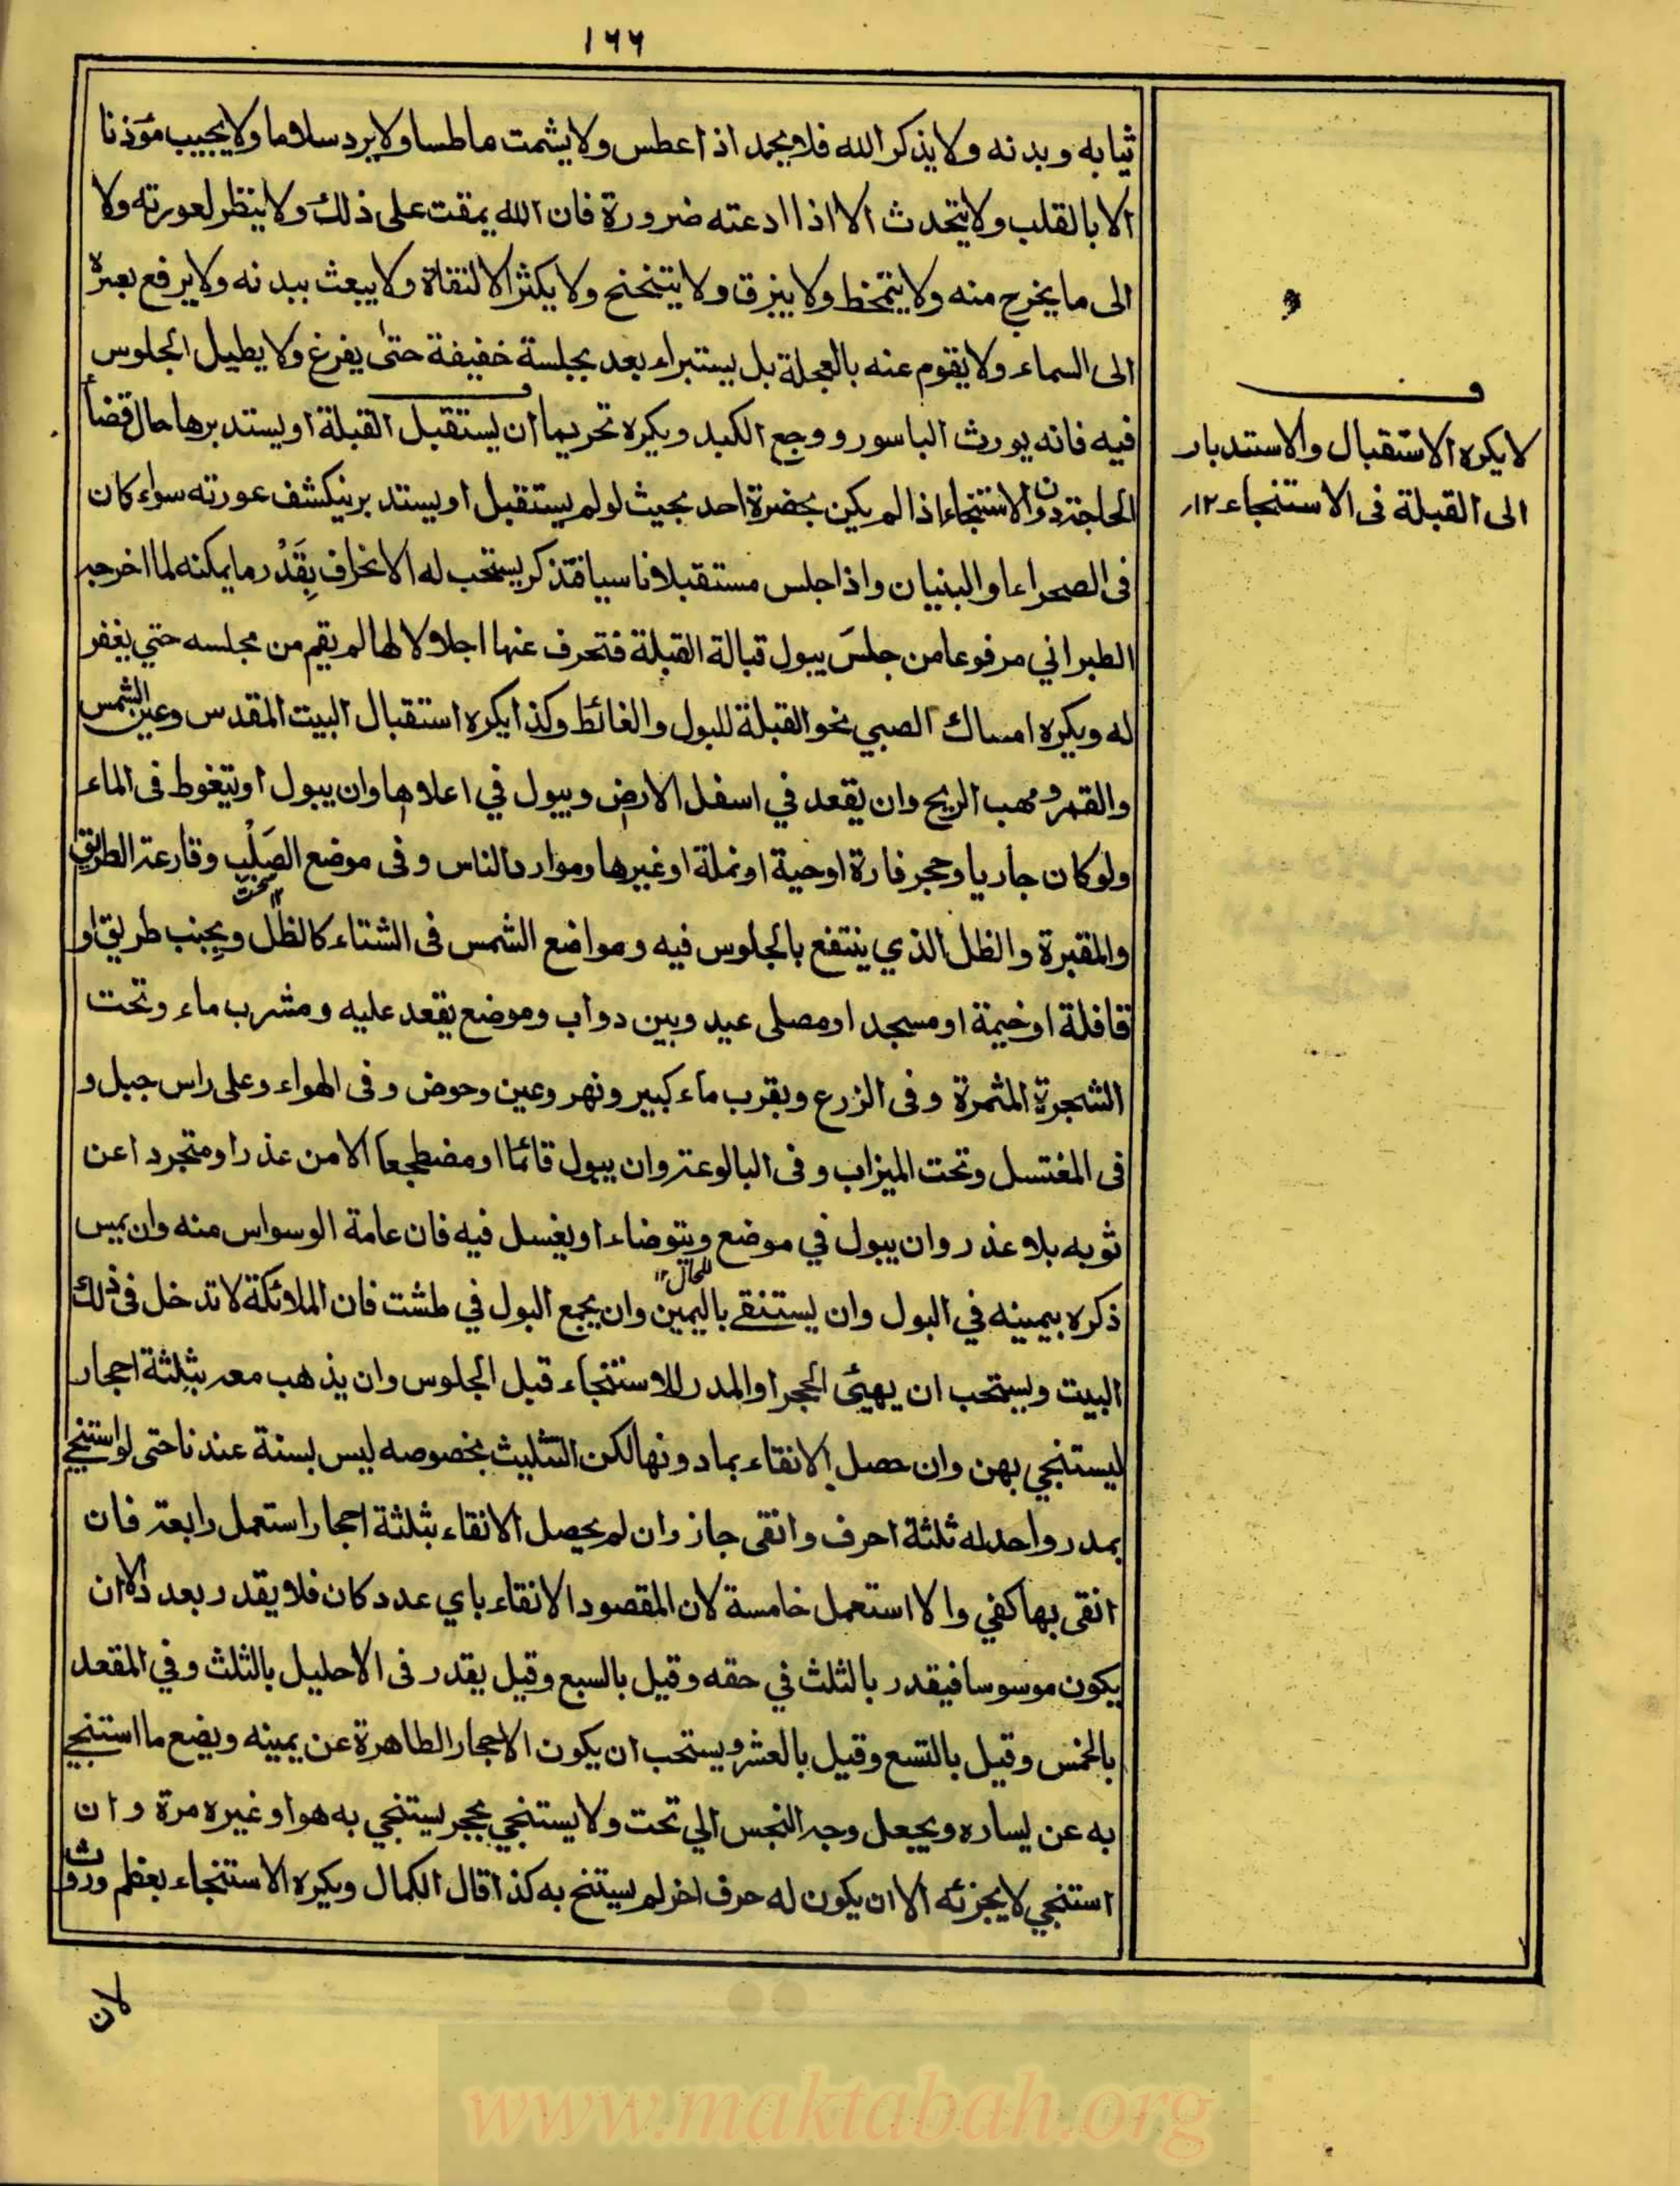 ١٦٦
ثيابه وبدنه ولا يذكر الله فلا يحمد اذا عطس ولا يشمت عاطسا ولا يرد سلاما ولا يجيب مؤذنا
الا بالقلب ولا يتحدث الا اذا ادعته ضرورة فان الله يمقت على ذلك ولا ينظر لعورته ولا
الى ما يخرج منه ولا يتمخط ولا يبزق ولا يتنحنح ولا يكثر الالتفاة ولا يبعث ببدنه ولا يرفع بصره
الى السماء ولا يقوم عنه بالعجلة بل يستبراء بعد بجلسة خفيفة حتى يفرغ ولا يطيل الجلوس
فيه فانه يورث الباسور ووجع الكبد ويكره تحريما ان يستقبل القبلة او يستدبرها حال قضأ
الحاجة دون الاستنجاء اذا لم يكن بحضرة احد بحيث لو لم يستقبل او يستدبر ينكشف عورته سواء كان
فى الصحراء او البنيان واذا جلس مستقبلا ناسيا فتذكر يستحب له الانحراف بِقَدْر ما يمكنه لما اخرجه
الطبراني مرفوعا من جلسَ يبول قبالة القبلة فتحرف عنها اجلالا لها لم يقم من مجلسه حتي يغفر
له ويكره امساك الصبي نحو القبلة للبول والغائط وكذا يكره استقبال البيت المقدس وعين الشمس
والقمر ومهب الريح وان يقعد في اسفل الارض ويبول في اعلاها وان يبول او يتغوط فى الماء
ولو كان جاريا وحجر فارة او حية او نملة او غيرها وموارد الناس وفى موضع الصَلْب وقارعة الطريق
سخت
والمقبرة والظل الذي ينتفع بالجلوس فيه ومواضع الشمس فى الشتاء كالظل ويجنب طريق او
قافلة او خيمة او مسجد او مصلى عيد وبين دواب وموضع يقعد عليه ومشرب ماء وتحت
الشجرة المثمرة وفى الزرع وبقرب ماء كبير ونهر وعين وحوض وفى الهواء وعلى راس جبل و
فى المغتسل وتحت الميزاب وفى البالوعة وان يبول قائما او مضطجعا الا من عذر او متجردا عن
ثوبه بلا عذر وان يبول في موضع ويتوضاء او يغسل فيه فان عامة الوسواس منه وان يمس
ذكره بيمينه في البول وان يستنقے باليمين وان يجمع البول في طشت فان الملائكة لا تدخل فى ذلك
البيت ويستحب ان يهيئ الحجر او المدر للاستنجاء قبل الجلوس وان يذهب معه بثلثة احجار
ليستنجي بهن وان حصل الانقاء بما دونها لكن التثليث بخصوصه ليس بسنة عندنا حتى لو استنجے
بمدر واحد له ثلثة احرف وانقى جاز وان لم يحصل الانقاء بثلثة احجار استعمل رابعة فان
انقى بها كفي والا استعمل خامسة لان المقصود الانقاء باي عدد كان فلا يقدر بعدد الا ان
يكون موسوسا فيقدر بالثلث في حقه وقيل بالسبع وقيل يقدر فى الاحليل بالثلث وفي المقعد
بالخمس وقيل بالتسع وقيل بالعشر ويستحب ان يكون الاحجار الطاهرة عن يمينه ويضع ما استنجے
به عن يساره ويجعل وجه النجس الي تحت ولا يستنجي بحجر يستنجي به هو او غيره مرة وان
استنجي لا يجزئه الا ان يكون له حرف اخر لم يستنج به كذا قال الكمال ويكره الاستنجاء بعظم وروث
لان
ف
لا يكره الاستقبال والاستدبار
الى القبلة فى الاستنجاء ١٢
www.maktabah.org